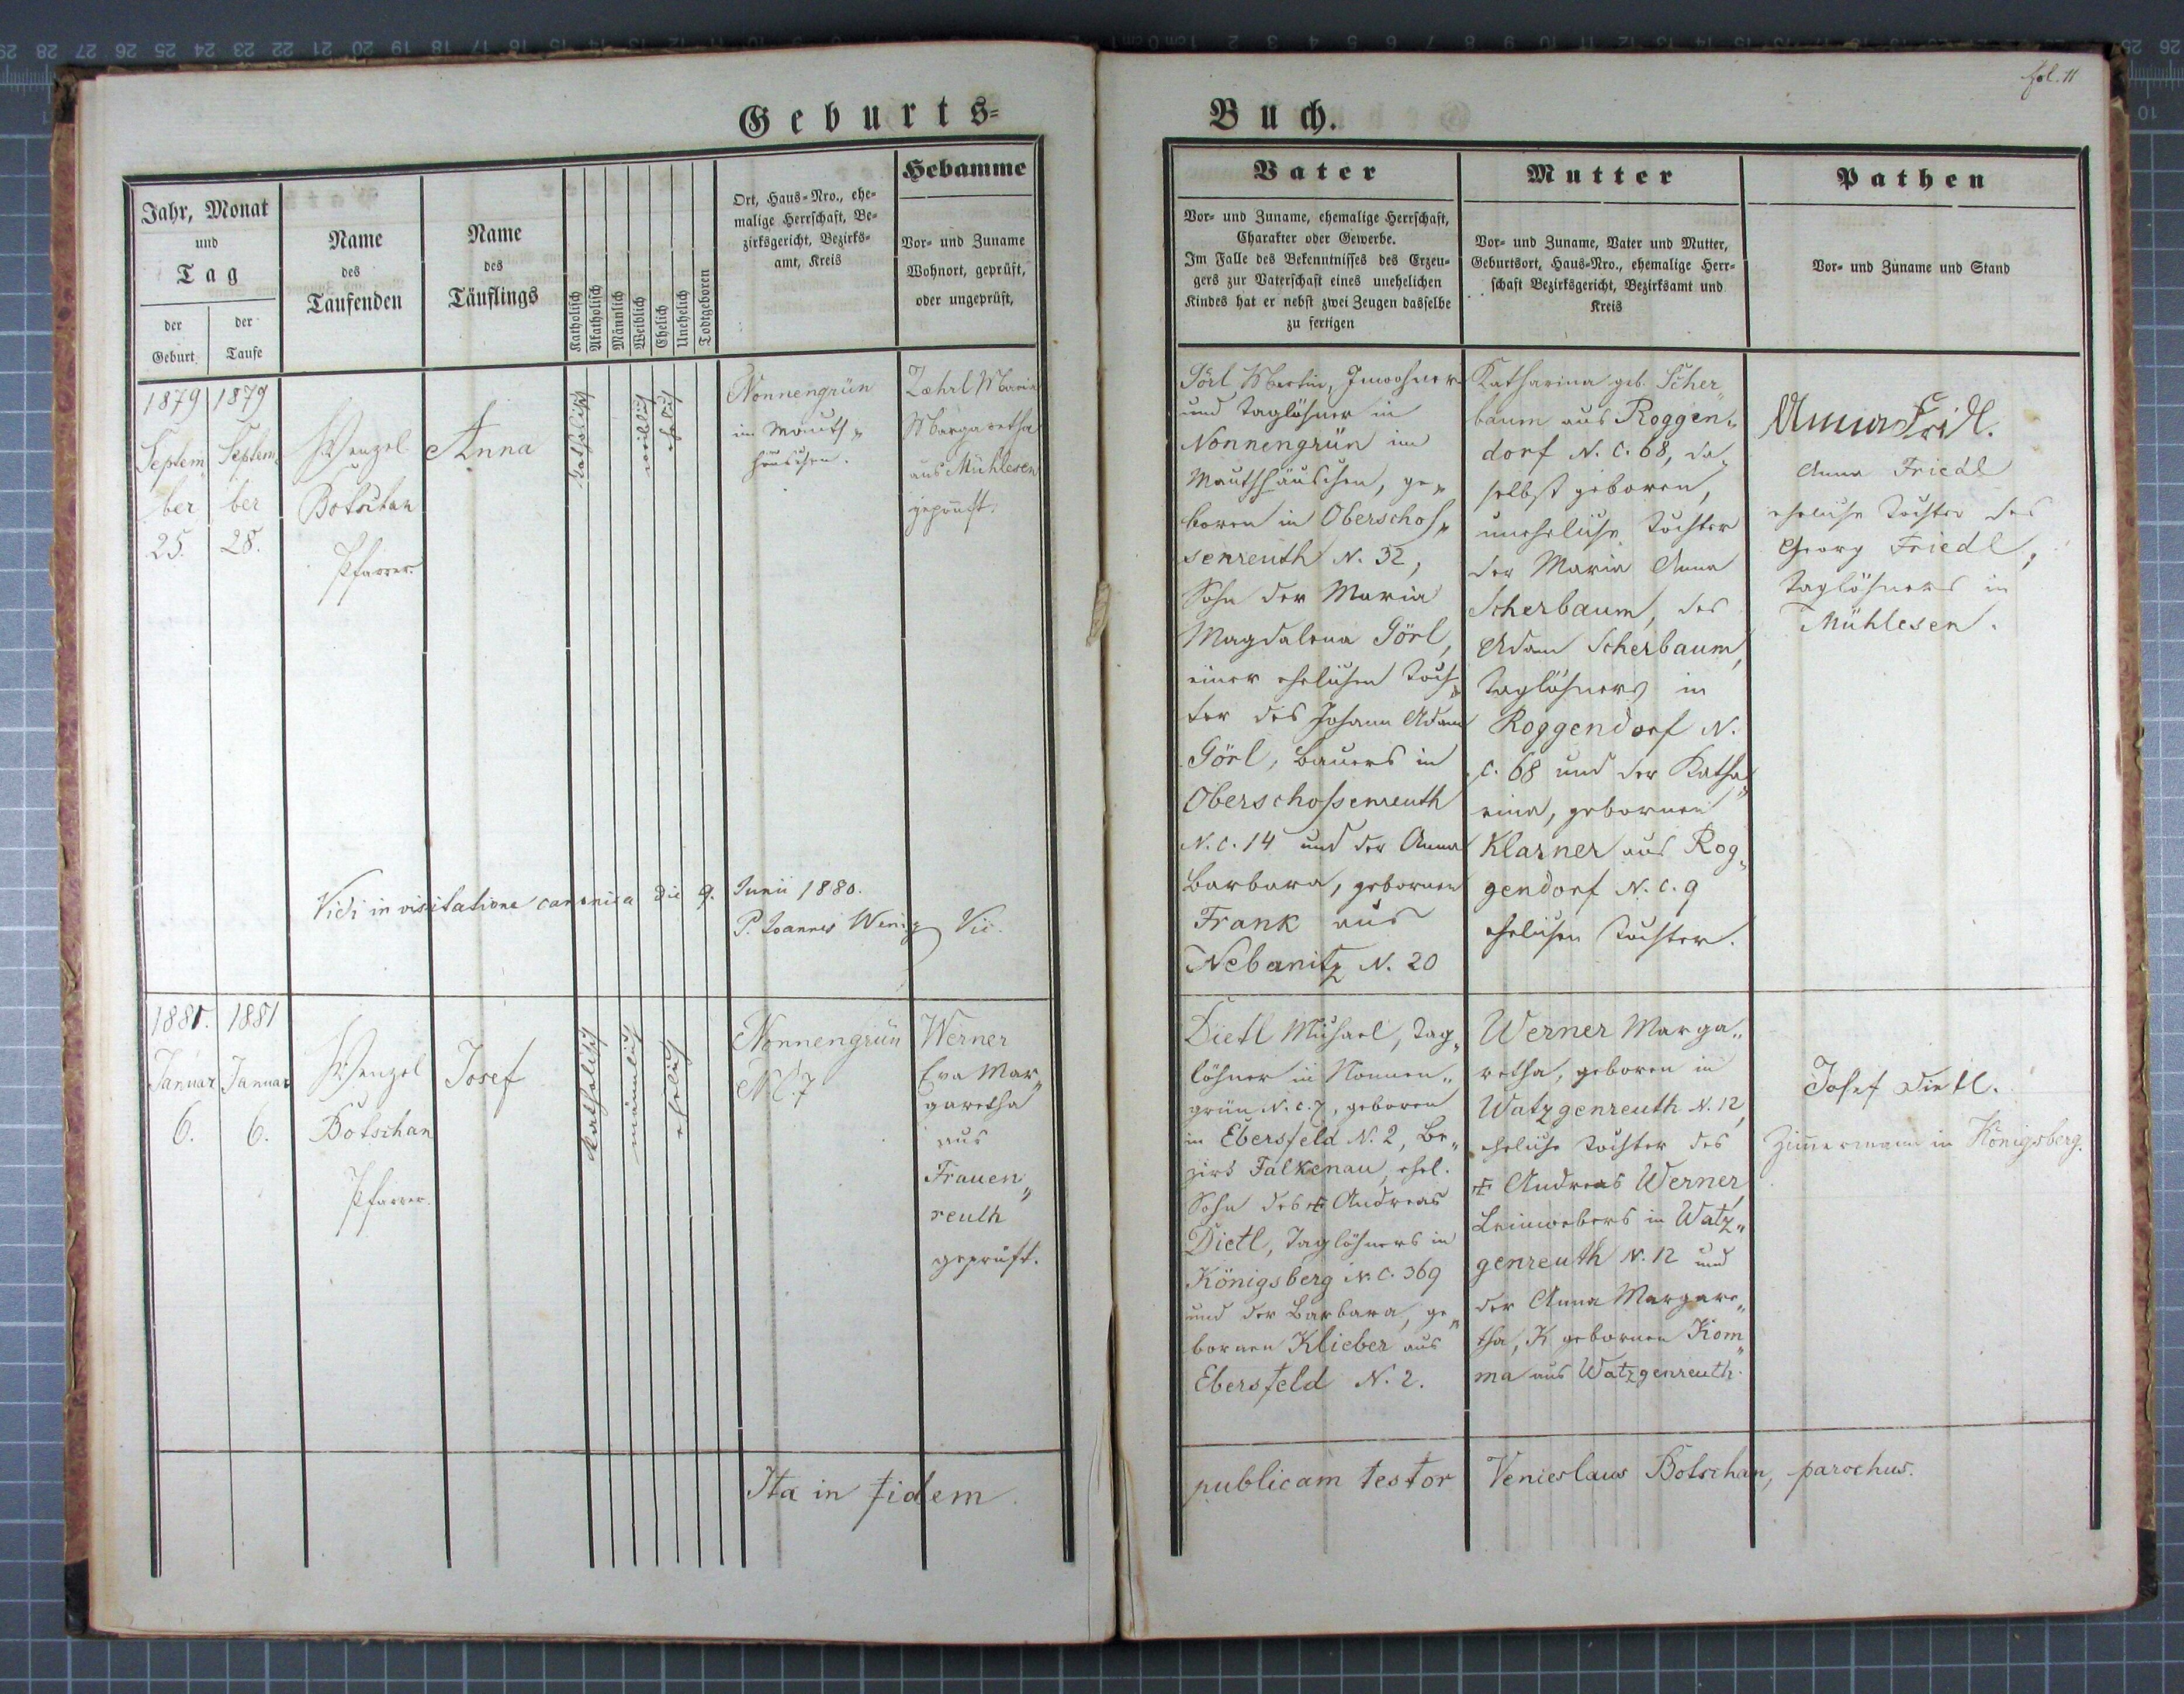 fol. 11
Geburts=
Buch.
Jahr, Monat
und
Tag
der
Geburt
der
Taufe
Name
des
Taufenden
Name
des
Täuflings
Katholisch
Akatholisch
Männlich
Weiblich
Ehelich
Unehelich
Todtgeboren
Ort, Haus-Nro., ehe-
malige Herrschaft, Be-
zirksgericht, Bezirks-
amt, Kreis
Hebamme
Vor- und Zuname
Wohnort, geprüft,
oder ungeprüft,
Vater
Vor- und Zuname, ehemalige Herrschaft,
Charakter oder Gewerbe.
Im Falle des Bekenntnisses des Erzeu-
gers zur Vaterschaft eines unehelichen
Kindes hat er nebst zwei Zeugen dasselbe
zu fertigen
Mutter
Vor- und Zuname, Vater und Mutter,
Geburtsort, Haus-Nro., ehemalige Herr-
schaft Bezirksgericht, Bezirksamt und
Kreis
Pathen
Vor- und Zuname und Stand
1879
Septem„
ber
25.
1879
Septem„
ber
28.
Wenzel
Botschan
Pfarrer
Anna
katholisch
weiblich
ehelich
Nonnengrün
im Mauth„
häuschen.
Zæhrl Maria
Margaretha
aus Mühlesen
geprüft.
Görl Martin, Inwohner
und Taglöhner in
Nonnengrün im
Mauthhäuschen, ge„
boren in Oberschos„
senreuth N. 32,
Sohn der Maria
Magdalena Görl,
einer ehelichen Toch„
ter des Johann Adam
Görl, Bauers in
Oberschossenreuth
N. C. 14 und der Anna
Barbara, gebornen
Frank aus
Nebanitz N. 20
Katharina geb. Scher„
baum aus Roggen„
dorf N. C. 68, da„
selbst geboren,
uneheliche Tochter
der Maria Anna
Scherbaum, des
Adam Scherbaum,
Taglöhners in
Roggendorf N.
C. 68 und der Katha„
rina, gebornen
Klarner aus Rog„
gendorf N. C. 9
ehelichen Tochter.
Anna Fridl.
Anna Friedl
eheliche Tochter des
Georg Friedl,
Taglöhners in
Mühlesen.
Vidi in visitatione canonica die 9. Junii 1880.
P. Joannes Wenig Vic.
1881.
Januar
6.
1881
Januar
6.
Wenzel
Botschan
Pfarrer.
Josef
katholisch
männlich
ehelich
Nonnengrün
N. C. 7
Werner
Eva Mar„
garetha
aus
Frauen„
reuth
geprüft.
Dietl Michael, Tag„
löhner in Nonnen„
grün N. C. 7, geboren
in Ebersfeld N. 2, Be„
zirk Falkenau, ehel.
Sohn des ✠ Andreas
Dietl, Taglöhners in
Königsberg N. C. 369
und der Barbara, ge„
bornen Klieber aus
Ebersfeld N. 2.
Werner Marga„
retha, geboren in
Watzgenreuth N. 12,
eheliche Tochter des
✠ Andreas Werner,
Leinwebers in Watz„
genreuth N. 12 und
der Anna Margare„
tha, K gebornen Kom„
ma aus Watzgenreuth.
Josef Dietl.
Zim̄ermann in Königsberg.
Ita in fidem
publicam testor Venceslaus Botschan, parochus.